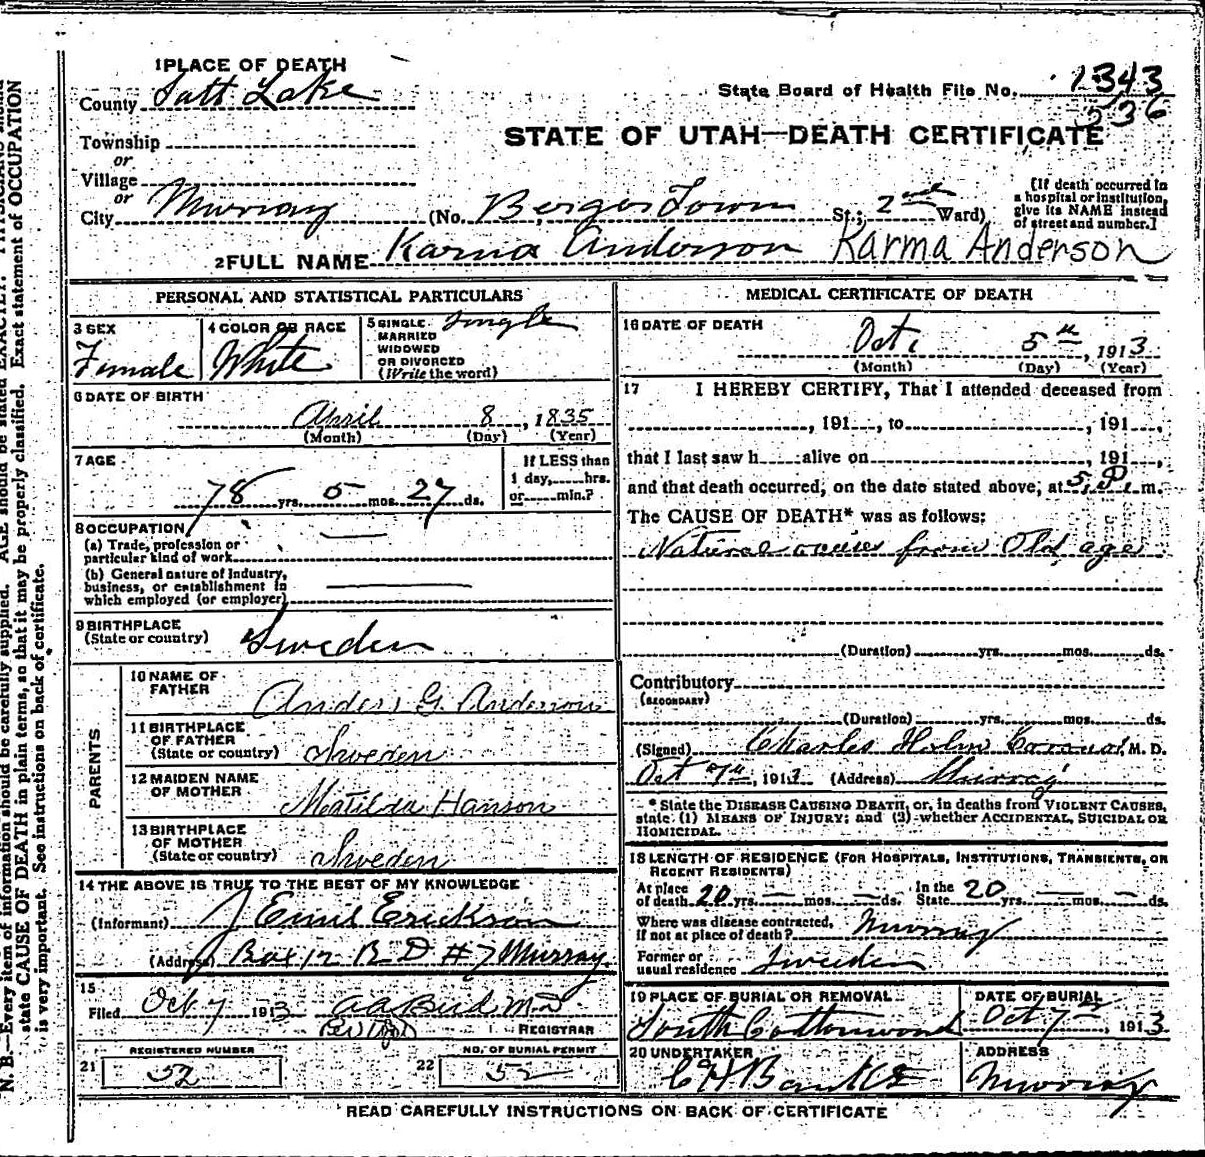 1 PLACE OF DEATH
County Salt Lake
State Board of Health File No. 1343
536
Township
or
Village
or
STATE OF UTAH—DEATH CERTIFICATE
City Murray (No. Berger Town St.; 2nd Ward)
[If death occurred in
a hospital or institution,
give its NAME instead
of street and number.]
2 FULL NAME Karma Anderson Karma Anderson
PERSONAL AND STATISTICAL PARTICULARS
3 SEX
Female
4 COLOR OR RACE
White
5 SINGLE Single
MARRIED
WIDOWED
OR DIVORCED
(Write the word)
6 DATE OF BIRTH
April 8, 1835
(Month) (Day) (Year)
7 AGE
78 yrs. 5 mos. 27 ds.
If LESS than
1 day, hrs.
or min.?
8 OCCUPATION
(a) Trade, profession or
particular kind of work
(b) General nature of Industry,
business, or establishment in
which employed (or employer)
9 BIRTHPLACE
(State or country) Sweden
PARENTS
10 NAME OF
FATHER Anders G. Anderson
11 BIRTHPLACE
OF FATHER
(State or country) Sweden
12 MAIDEN NAME
OF MOTHER Matilda Hanson
13 BIRTHPLACE
OF MOTHER
(State or country) Sweden
14 THE ABOVE IS TRUE TO THE BEST OF MY KNOWLEDGE
(Informant) J Emil Erickson
(Address) Box 12 R D # 7 Murray
15
Filed Oct 7 1913 M D
REGISTRAR
REGISTERED NUMBER
21 52
NO. OF BURIAL PERMIT
22 52
MEDICAL CERTIFICATE OF DEATH
16 DATE OF DEATH
Oct. 5th, 1913
(Month) (Day) (Year)
17 I HEREBY CERTIFY, That I attended deceased from
, 191 , to , 191 ,
that I last saw h alive on , 191 ,
and that death occurred, on the date stated above, at 5 P. m.
The CAUSE OF DEATH* was as follows:
Natural causes from Old age
(Duration) yrs. mos. ds.
Contributory
(SECONDARY)
(Duration) yrs. mos. ds.
(Signed) Charles Holm Coroner, M. D.
Oct 7th, 1913 (Address) Murray
* State the DISEASE CAUSING DEATH, or, in deaths from VIOLENT CAUSES,
state (1) MEANS OF INJURY; and (2) whether ACCIDENTAL, SUICIDAL OR
HOMICIDAL.
18 LENGTH OF RESIDENCE (FOR HOSPITALS, INSTITUTIONS, TRANSIENTS, OR
RECENT RESIDENTS)
At place
of death 20 yrs. — mos. — ds.
In the
State 20 yrs. — mos. — ds.
Where was disease contracted,
if not at place of death? Murray
Former or
usual residence Sweden
19 PLACE OF BURIAL OR REMOVAL
South Cottonwood
DATE OF BURIAL
Oct 7th, 1913
20 UNDERTAKER
ADDRESS
Murray
READ CAREFULLY INSTRUCTIONS ON BACK OF CERTIFICATE
N. B.—Every item of information should be carefully supplied. AGE should be stated EXACTLY.
state CAUSE OF DEATH in plain terms, so that it may be properly classified. Exact statement of OCCUPATION
is very important. See instructions on back of certificate.